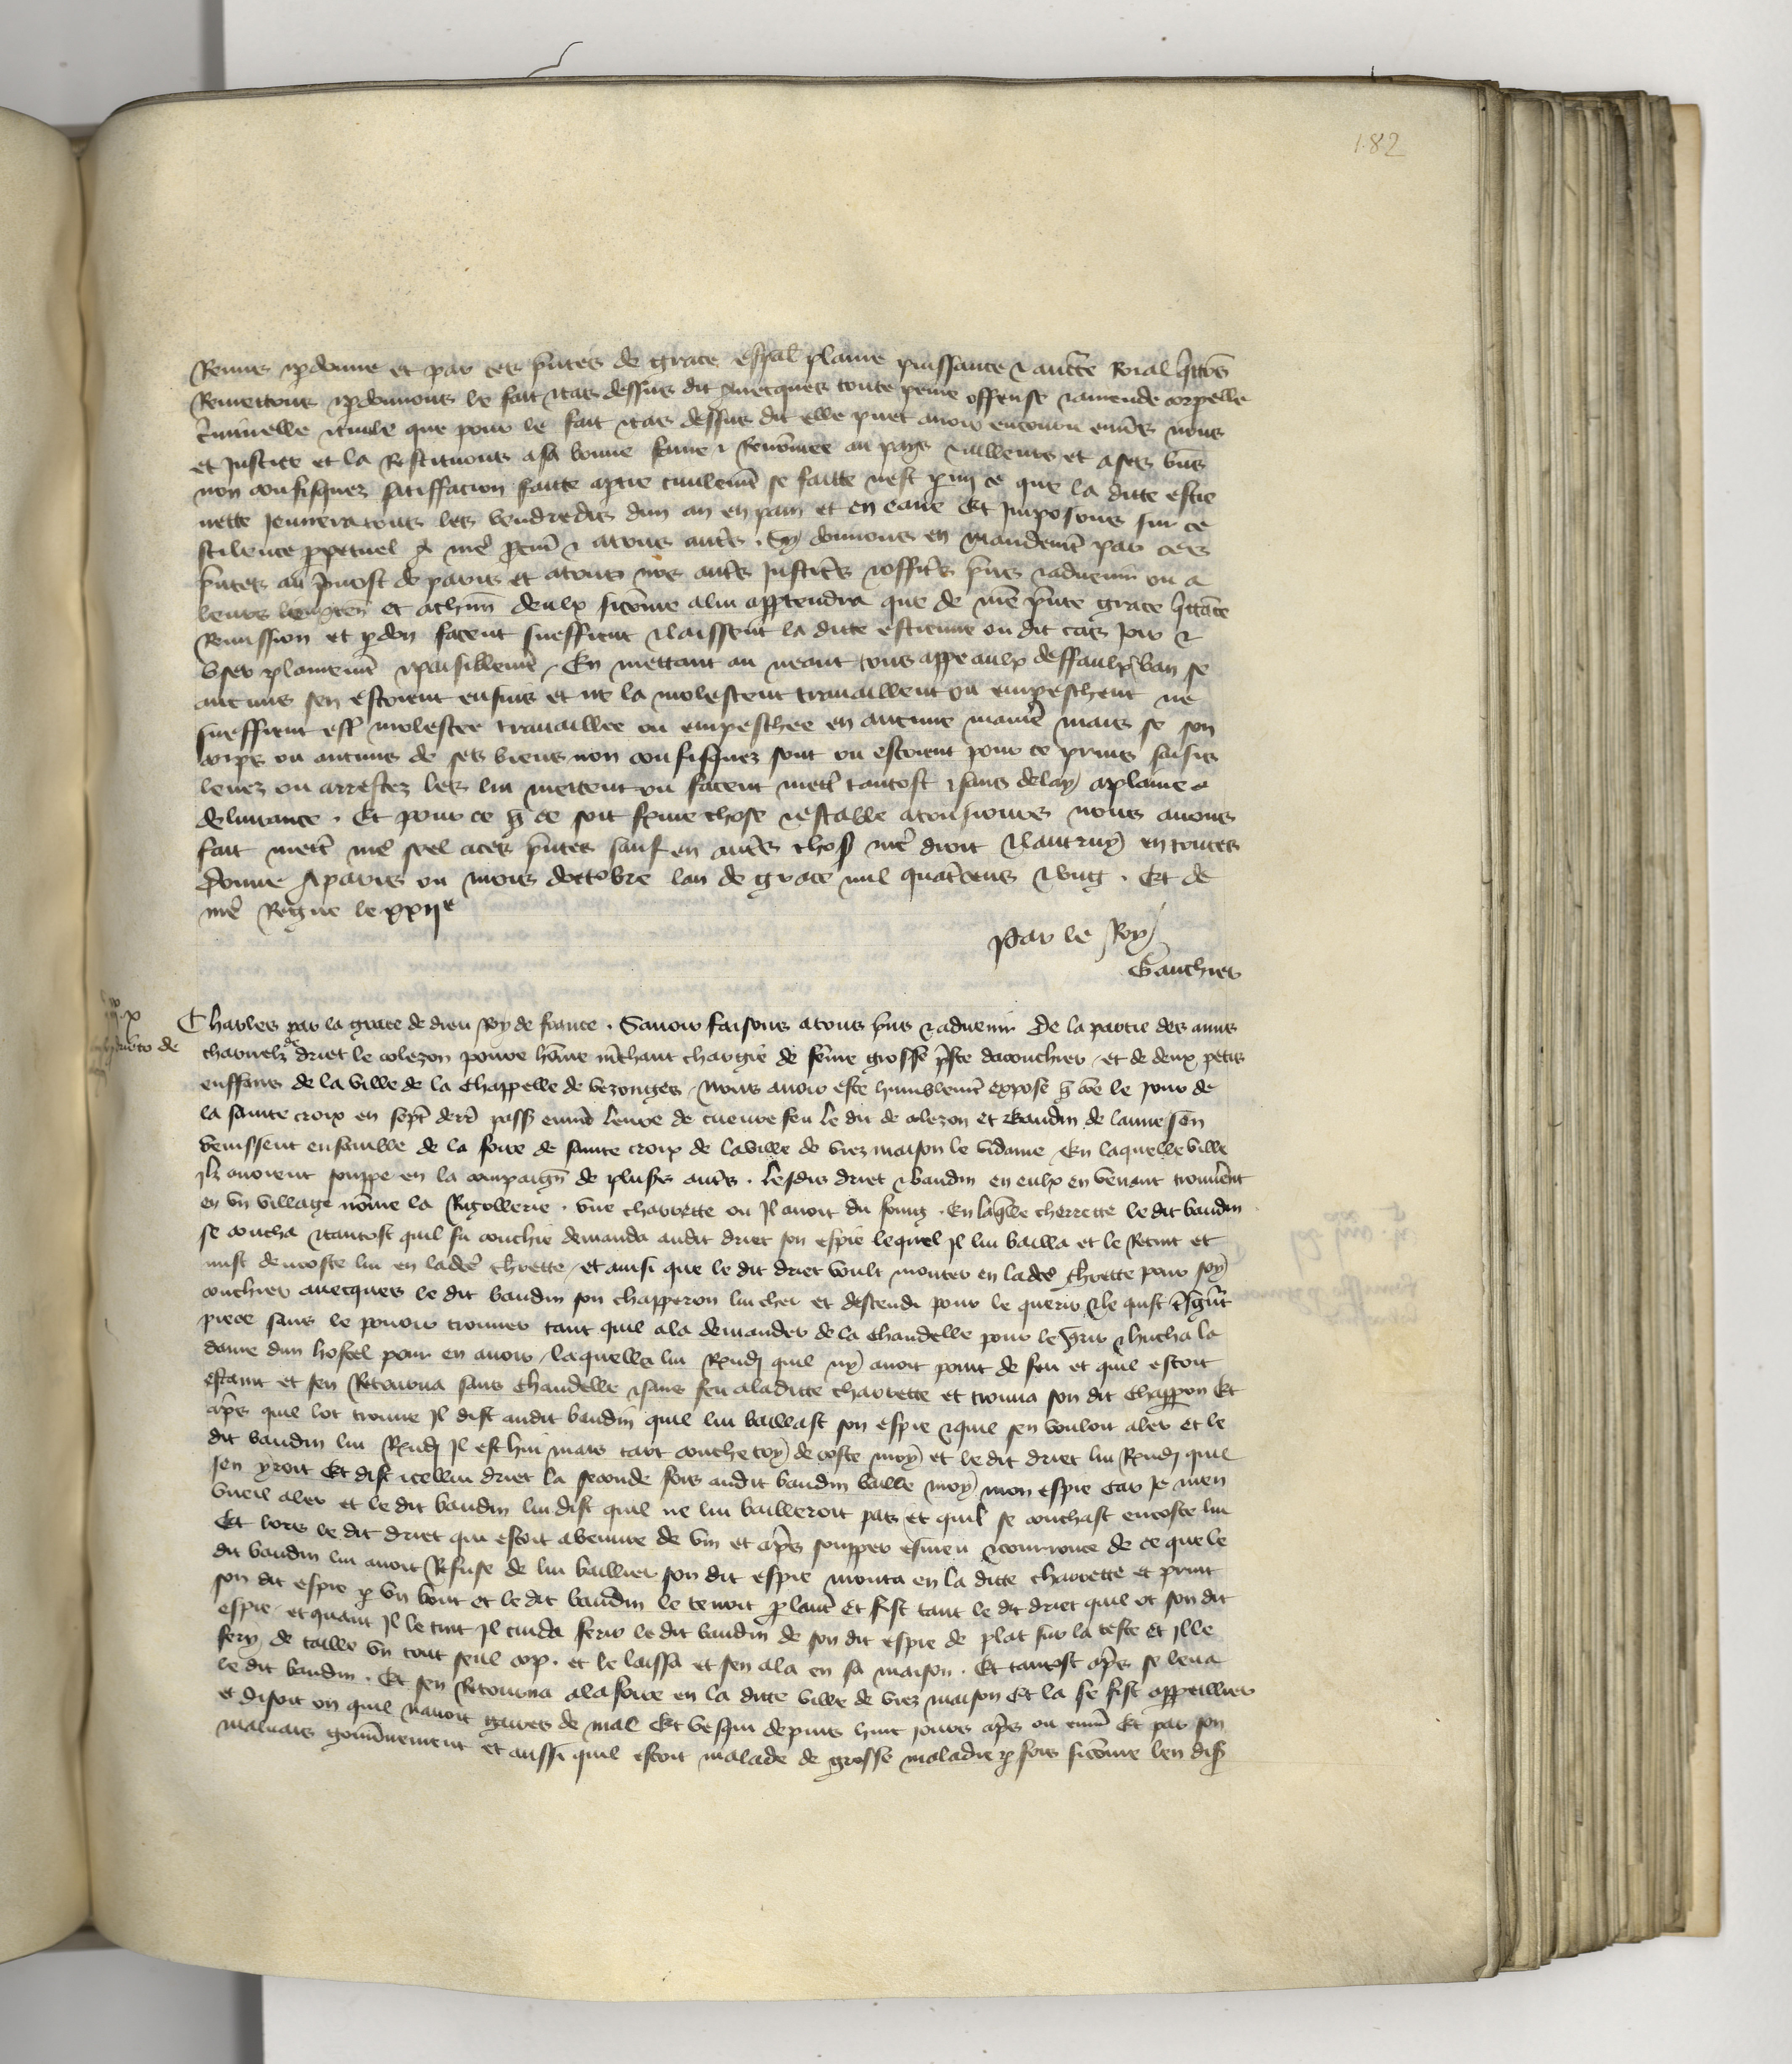 182
Remis pdonne et par ces pntes de grace espal plaine puissance & aucte Roial qttos
Remettons pdonnons le fait & cas dessus dit avecques toute peine offense & amende corpelle
criminelle & civile que pour le fait & cas dessus dit elle puet avoir encouru envs nous
et Justice et la Restituons a sa bonne fame & Renomee au pays & ailleurs et a ses bns
non confisquez satiffacion faitte a ptie civilemt se faitte nest pmi ce que la ditte estie
nette Jeunera tous les vendredis dun an en pain et en eaue Et Imposons sur ce
scilence ppetuel a nre pcur & a tous autrs . Sy donnons en mandemt par ces
pntes au pvost de paris et a tous nos autrs Justicrs & officrs pns & advenir ou a
leurs lieuxten et a chun deulx sicome a lui apptendra que de nre pnte grace qttace
Remission et pdon facent sueffrent & laissent la ditte estienne ou dit cas Joir &
user plainemt & paisiblemt . En mettant au neant tous appeaulx deffaulx & ban se
aucuns sen estoient ensuis et ne la molestent travaillent ou empeschent ne
sueffrent estr molestee travaillee ou empeschee en aucune maniere mais se son
corps ou aucuns de ses biens non confisquez sont ou estoient pour ce prins saisis
levez ou arrestez les lui mettent ou facent mettr tantost & sans delay a plaine
delivrance . Et pour ce q ce soit ferme chose & estable a tousjours nous avons
fait mettr nre seel a ces pntes sauf en autrs chos nre droit & lautruy en toutes
Donne A paris ou mois doctobre lan de grace mil quatrcens & ung . Et de
nre Regne le xxiie
Par le Roy
Gauthier
Charles par la grace de dieu Roy de france . Savoir faisons a tous pns & advenir De la partie des amis
charnelz de driet le colezon povre home mchant chargie de feme grosse pste dacouchier et de deux petis
enffans de la ville de la Chappelle de bezonges Nous avoir este humblemt expose q coe le Jour de
la sainte croix en sept derr pass envir leure de cueuvre feu le dit de colezon et Baudin de lannesson
venissent ensamble de la foire de sainte croix de la ville de viez maison le vidame En laquelle ville
Ilz avoient souppe en la compaign de pluss autrs . lesdis driet & baudin en eulx en venant trouvent
en un village nome la Rigollerie . une charrette ou Il avoit du foing . En laqlle cherrette le dit baudin
se coucha & tantost quil fu couchie demanda audit driet son espie lequel Il lui bailla et le Retint et
mist dencoste lui en ladte chrette et ainsi que le dit driet voult monter en ladte chrette pour soy
couchier avecques le dit baudin son chapperon lui chei et descendi pour le querir & le quist
piece sans le povoir trouver tant quil ala demander de la chandelle pour le qrir & hucha la
dame dun hostel pour en avoir laquelle lui Rendi quil ny avoit point de feu et quil estoit
estaint et sen Retourna sans chandelle & sans feu a laditte charrette et trouva son dit chappon Et
aprs quil lot trouve Il dist audit baudin quil lui baillast son espie & quil sen vouloit aler et le
dit baudin lui Rendi Il est hui mais tart couche toy de coste moy et le dit driet lui Rendi quil
sen yroit Et dist icellui driet la seconde fois audit baudin baille moy mon espie car Je men
vueil aler et le dit baudin lui dist quil ne lui bailleroit pas et quil se couchast encoste lui
Et lors le dit driet qui estoit abeuvre de vin et aprs soupper esmeu & courrouce de ce que le
dit baudin lui avoit Refuse de lui baillier son dit espie monta en la ditte charrette et print
son dit espie p un bout et le dit baudin le tenoit p lautr et fist tant le dit driet quil ot son dit
espie et quant Il le tint Il cuida ferir le dit baudin de son dit espie de plat sur la teste Et Il le
fery de taille un tout seul cop . et le laissa et sen ala en sa maison . Et tantost aprs se leva
le dit baudin . Et sen Retourna a la foire en la ditte ville de viez maison Et la se fist appeillier
et disoit on quil navoit gaires de mal Et vesqui depuis huit jours aprs ou envir Et par son
malvais gouvnement et aussi quil estoit malade de grosse maladie p fois sicome len dis